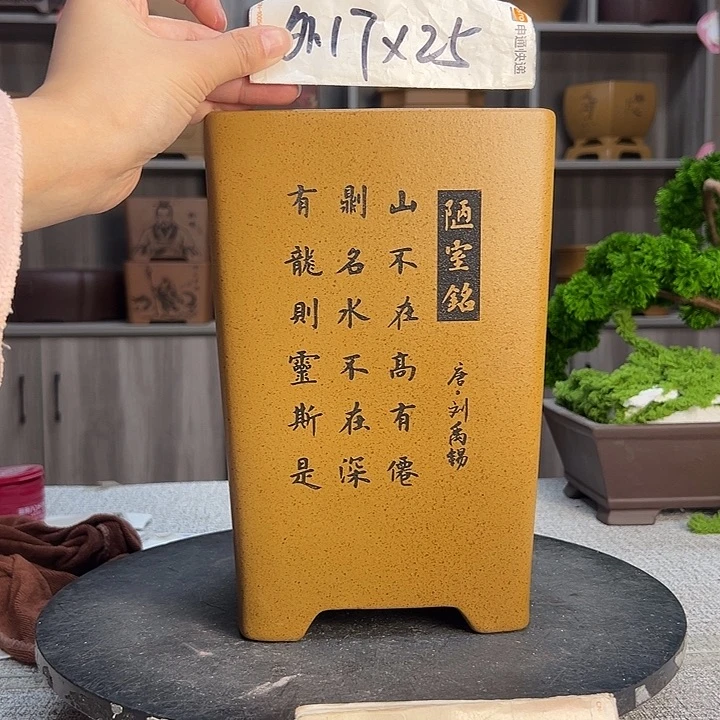 外17×25
申通快递
陋室銘
唐·刘禹錫
山不在髙有僊
剘名水不在深
有龍則靈斯是